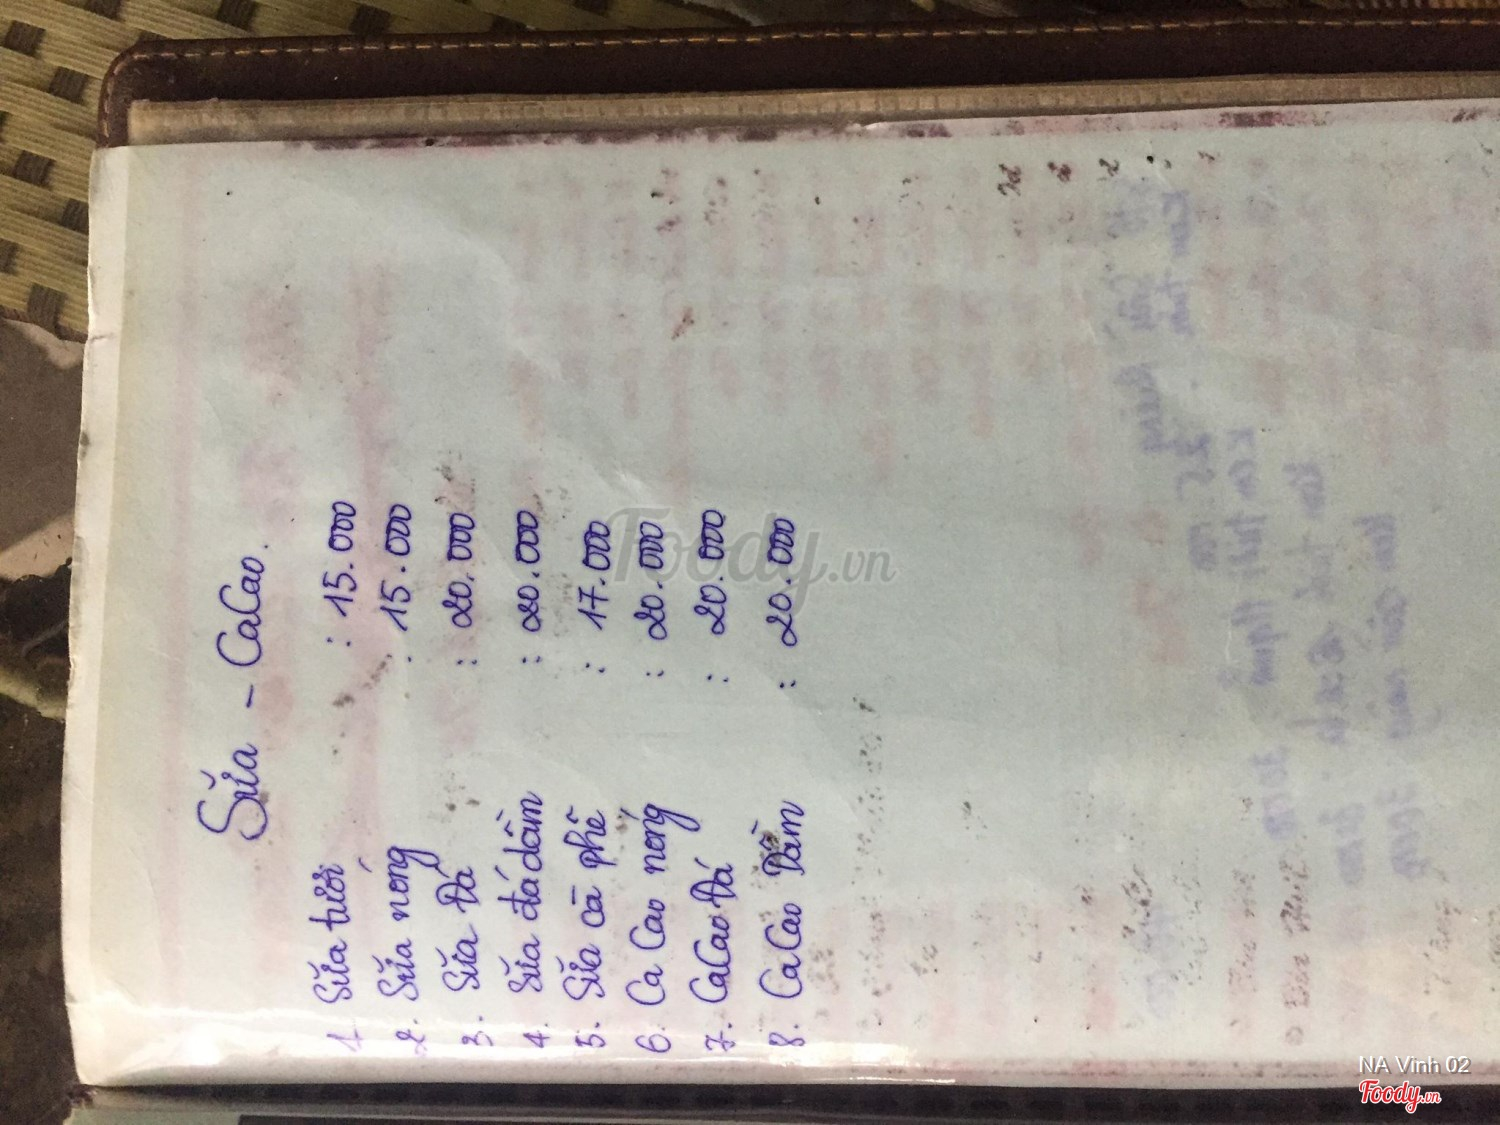 Sữa - CaCao.
1. Sữa tươi : 15.000
2. Sữa nóng : 15.000
3. Sữa Đá : 20.000
4. Sữa đá dầm : 20.000
5. Sữa cà phê : 17.000
6. Ca Cao nóng : 20.000
7. CaCao Đá : 20.000
8. CaCao Dầm : 20.000
Foody.vn
NA Vinh 02
Foody.vn